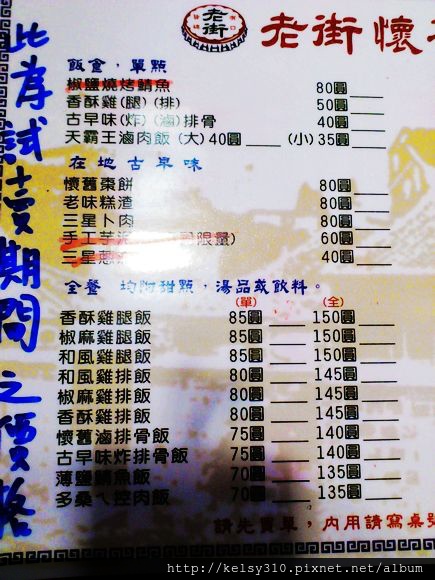 此為試賣期間之價格
老街
老街懷
飯食，單點
椒鹽燒烤鯖魚 80圓
香酥雞(腿)(排) 50圓
古早味(炸)(滷)排骨 40圓
天霸王滷肉飯(大)40圓 (小)35圓
在地古早味
懷舊棗餅 80圓
老味糕渣 80圓
三星卜肉 80圓
手工芋泥 限量) 60圓
三星蔥 40圓
全餐 均附甜點，湯品或飲料。
(單) (全)
香酥雞腿飯 85圓 150圓
椒麻雞腿飯 85圓 150圓
和風雞腿飯 85圓 150圓
和風雞排飯 80圓 145圓
椒麻雞排飯 80圓 145圓
香酥雞排飯 80圓 145圓
懷舊滷排骨飯 75圓 140圓
古早味炸排骨飯 75圓 140圓
薄鹽鯖魚飯 70圓 135圓
多桑ㄟ控肉飯 70圓 135圓
請先買單，內用請寫桌號
http://kelsy310.pixnet.net/album